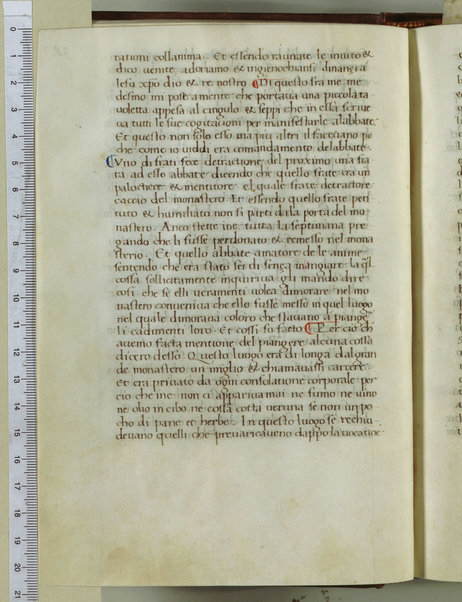 tationi collamina. Et essendo raunate le inuito &
dico uenite adoriamo & ingienochiansi dinanzi a
Iesu xp̄o dio & re nostro. Di questo fra me me
desimo mi pose a mente che portaua una piccola ta
uoletta appesa al cingulo & seppi che in essa scriue
ua tutti le sue cogitationi per manifestarle alabbate.
Et questo non solo esso ma piu altri il faceano po
che come io uiddi era comandamento delabbate.
Vno di frati fece detractione del proximo una fia
ta ad esso abbate dicendo che quello frate era un
paloctiere & mentitore el quale frate detractore
caccio del monastero. Et essendo quello frate pen
tuto & humiliato non si parti dala porta del mo
nastero. Anco stette iue tutta la septimana pre
gando che li fusse perdonato & remesso nel mona
sterio. Et quello abbate amatore de le anime
sentendo che era stato sei di senza mangiare la q̄l
cossa sollicitamente inquiriua gli mando dire
cosi che se elli ueramenti uolea dimorare nel mo
nastero conuenia che ello fusse messo in quel luogo
nel quale dimoraua coloro che stauano a piange
li cadimenti loro. Et cossi fu facto Per cio ch
auemo facta mentione del piangere alcuna cossa
dicero desso. Questo luogo era di longa dal gran
de monastero un miglio & chiamauasi carcere.
Et era priuato da ogni consolatione corporale per
cio che iue non ci appariua mai ne fumo ne uino
ne olio in cibo ne cossa cotta ueruna se non un po
cho di pane et herbe. In questo luogo se rechiu
deuano quelli che preuaricaueno dappo la uocatioe